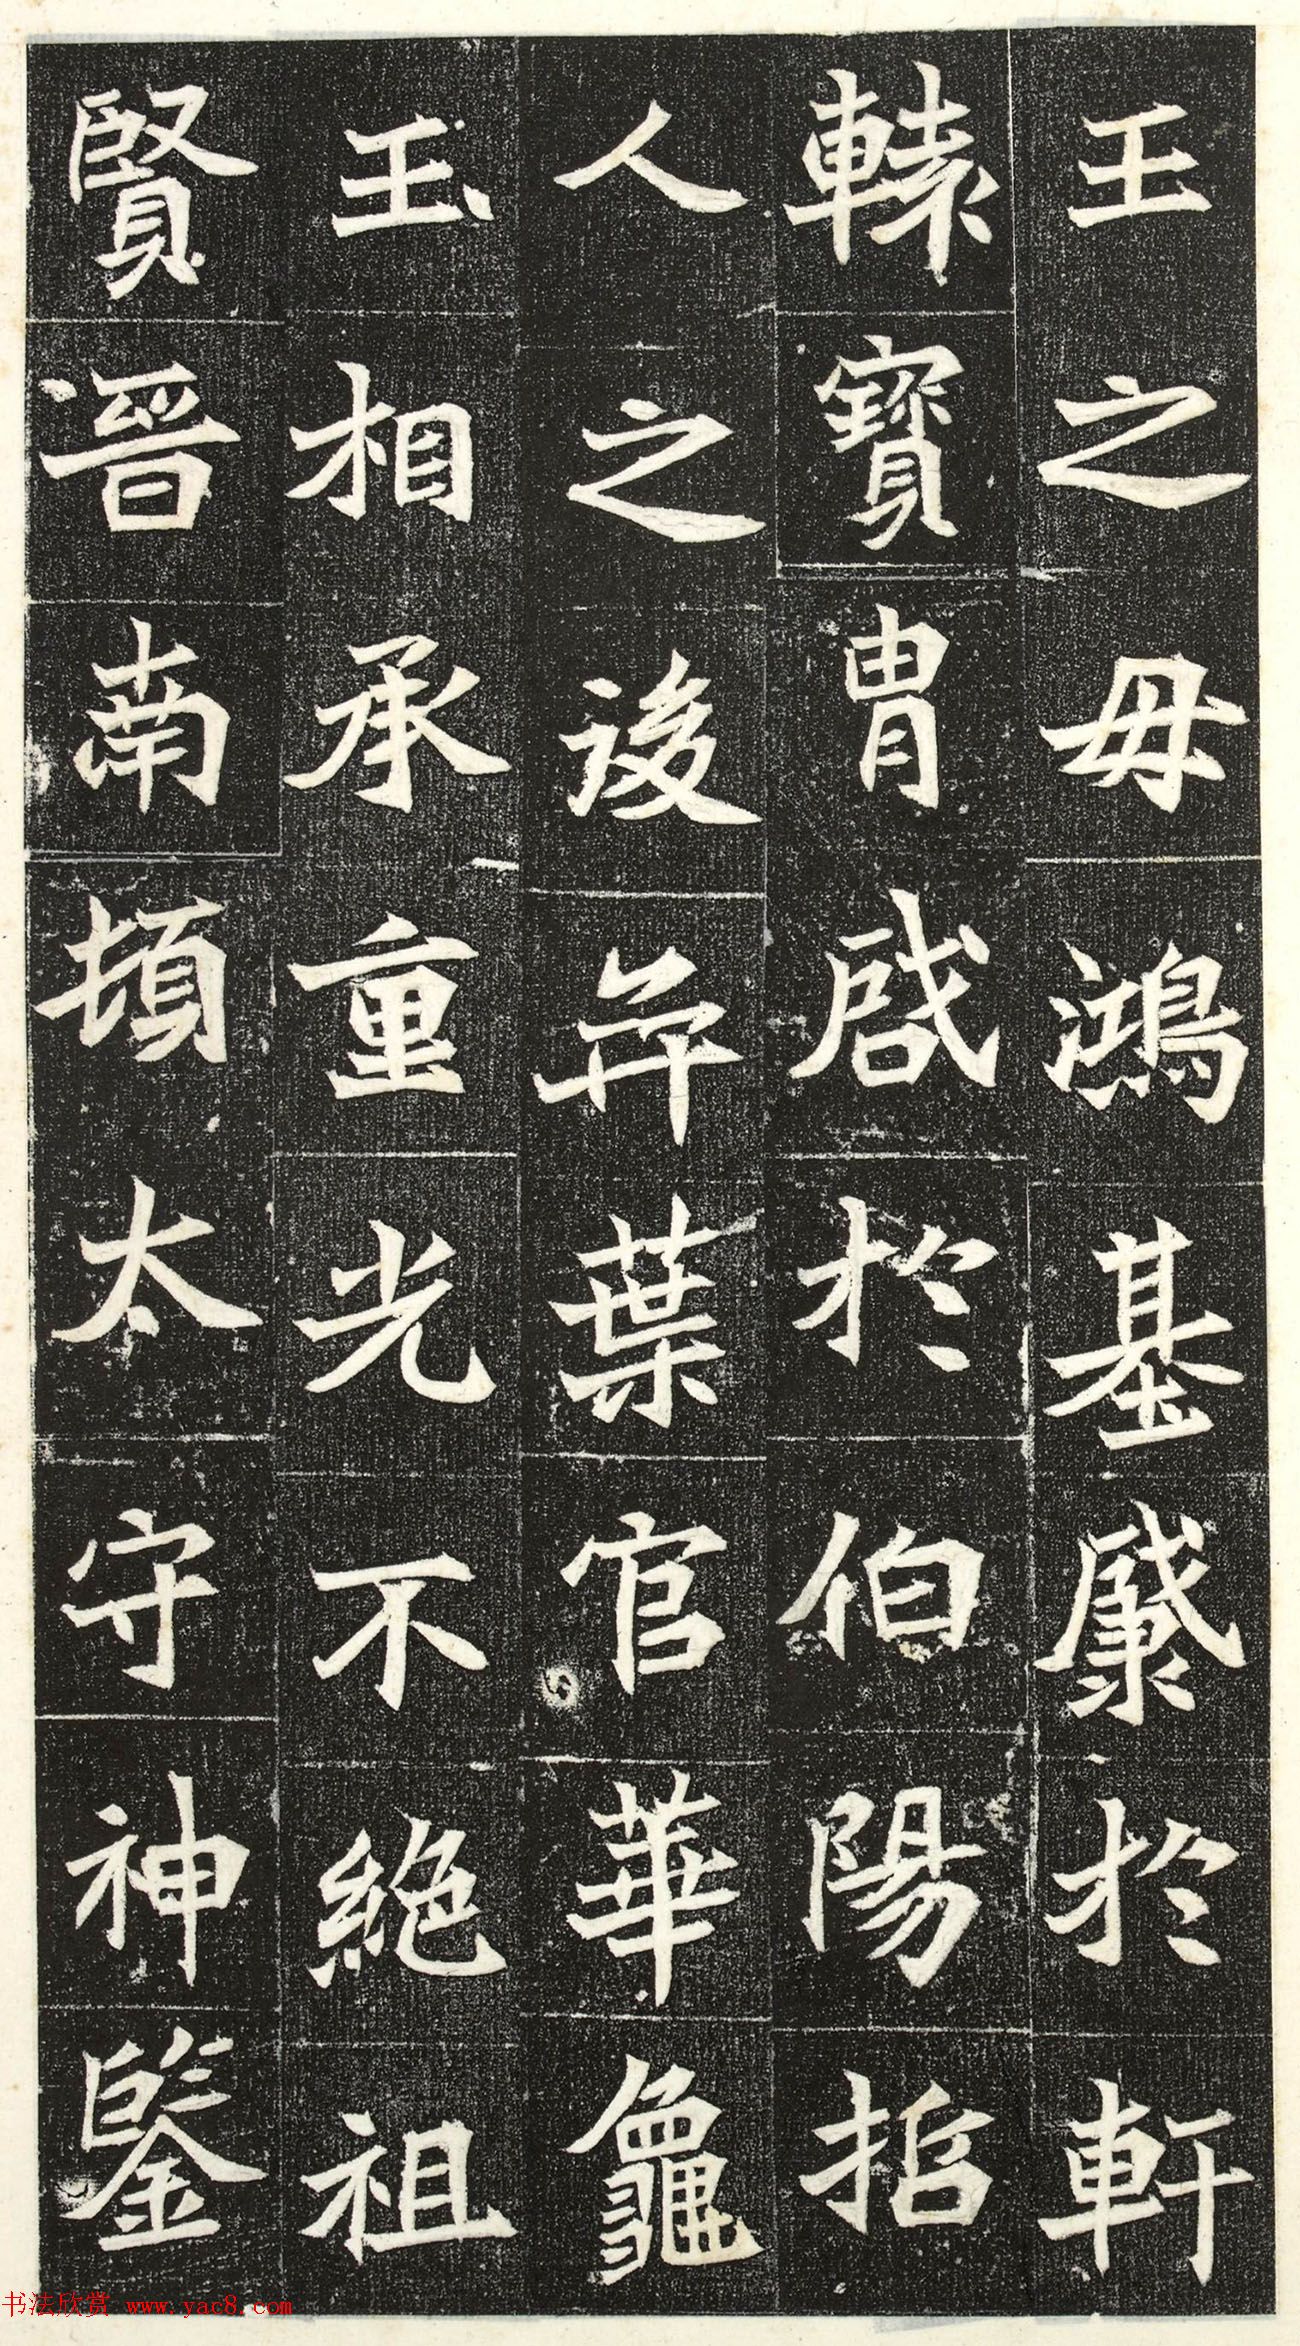 王之母鴻基感於軒
轅寶胄啟於伯陽指
人之後弈葉官華龜
玉相承重光不絕祖
賢晉南頓太守神鑒
书法欣赏 www.yac8.com